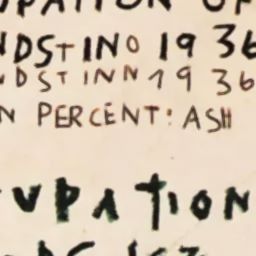 UPATION OF
NDSTINO 1936
NDSTINN 1936
N PERCENT: ASH
UPATION